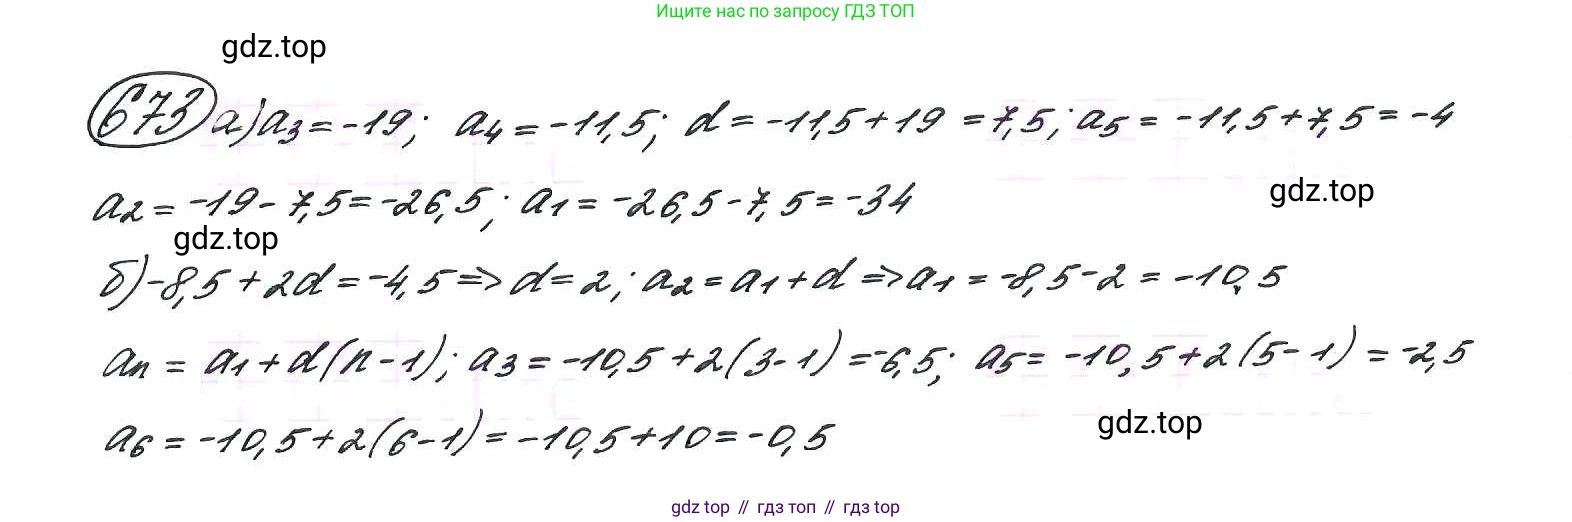 Ищите нас по запросу ГДЗ ТОП
gdz.top
673 а) a3 = -19; a4 = -11,5; d = -11,5 + 19 = 7,5; a5 = -11,5 + 7,5 = -4
a2 = -19 - 7,5 = -26,5; a1 = -26,5 - 7,5 = -34
gdz.top
gdz.top
б) -8,5 + 2d = -4,5 => d = 2; a2 = a1 + d => a1 = -8,5 - 2 = -10,5
an = a1 + d(n - 1); a3 = -10,5 + 2(3 - 1) = -6,5; a5 = -10,5 + 2(5 - 1) = -2,5
gdz.top
a6 = -10,5 + 2(6 - 1) = -10,5 + 10 = -0,5
gdz top // гдз топ // гдз top